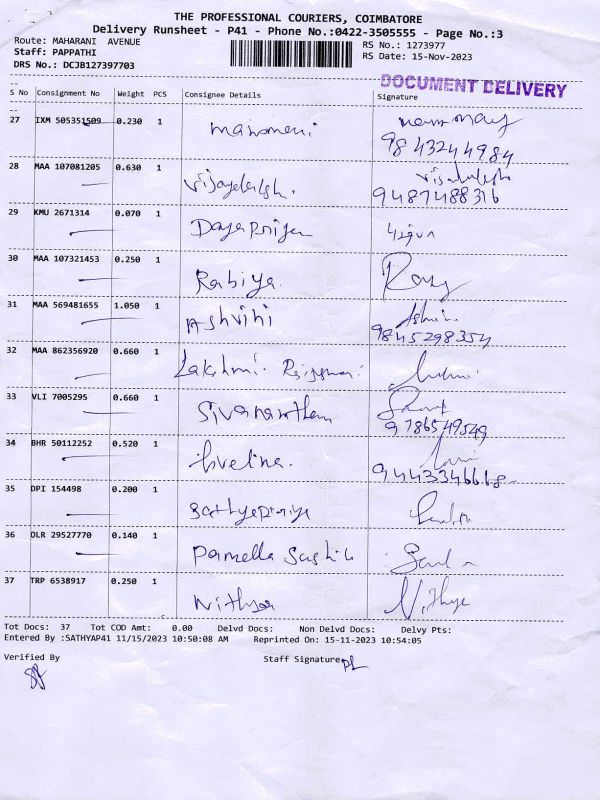 THE PROFESSIONAL COURIERS, COIMBATORE
Delivery Runsheet - P41 - Phone No.:0422-3505555 - Page No.:3
Route: MAHARANI AVENUE
RS No.: 1273977
Staff: PAPPATHI
RS Date: 15-Nov-2023
DRS No.: DCJB127397703
DOCUMENT DELIVERY
S No Consignment No Weight PCS Consignee Details Signature
27 IXM 505351509 0.230 1
9843244984
28 MAA 107081205 0.630 1
9487488316
29 KMU 2671314 0.070 1 Dayapriya
30 MAA 107321453 0.250 1 Rabiya
31 MAA 569481655 1.050 1 Ashvihi
9845298354
32 MAA 862356920 0.660 1 Lakshmi
33 VLI 7005295 0.660 1
9786549549
34 BHR 50112252 0.520 1
9443346668
35 DPI 154498 0.200 1 Sathyapriya
36 OLR 29527770 0.140 1 Pamella
37 TRP 6538917 0.250 1 Nithya Nithya
Tot Docs: 37 Tot COD Amt: 0.00 Delvd Docs: Non Delvd Docs: Delvy Pts:
Entered By :SATHYAP41 11/15/2023 10:50:08 AM Reprinted On: 15-11-2023 10:54:05
Verified By Staff Signature